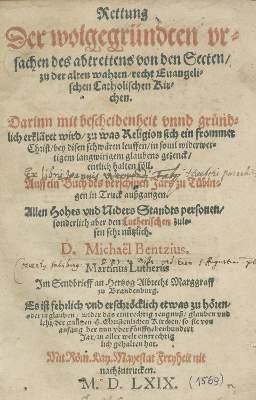 Rettung
Der wolgegründten vr-
sachen des abtrettens von den Secten/
zu der alten wahren/ recht Euangeli-
schen Catholischen Kir-
chen.
Darinn mit bescheidenheit vnnd gründ-
lich erkläret wird/ zu was Religion sich ein frommer
Christ/ bey disen schwären leuffen/ in souil widerwer-
tigem langwirigem glaubens gezenck/
entlich halten söll.
Auff ein Buch des vergangnen Jars zu Tübin-
gen in Truck außgangen.
Allen Hohes vnd Niders Standts personen/
sonderlich aber den Lutherischen zule-
sen sehr nützlich.
D. Michaël Bentzius.
Martinus Lutherus
Im Sendbrieff an Hertzog Albrecht Marggraff
zu Brandenburg.
Es ist fehrlich vnd erschröcklich etwas zu hören/
oder zu glauben/ wider das eintrechtig zeugnuß/ glauben vnd
lehr/ der gantzen H. Christenlichen Kirchen/ so sie von
anfang her nun vber fünfftzehenhundert
Jar/ in aller welt eintrechtig-
lich gehalten hat.
Mit Röm. Kay. Mayestat Freyheit nit
nachzutrucken.
M. D. LXIX. (1569)